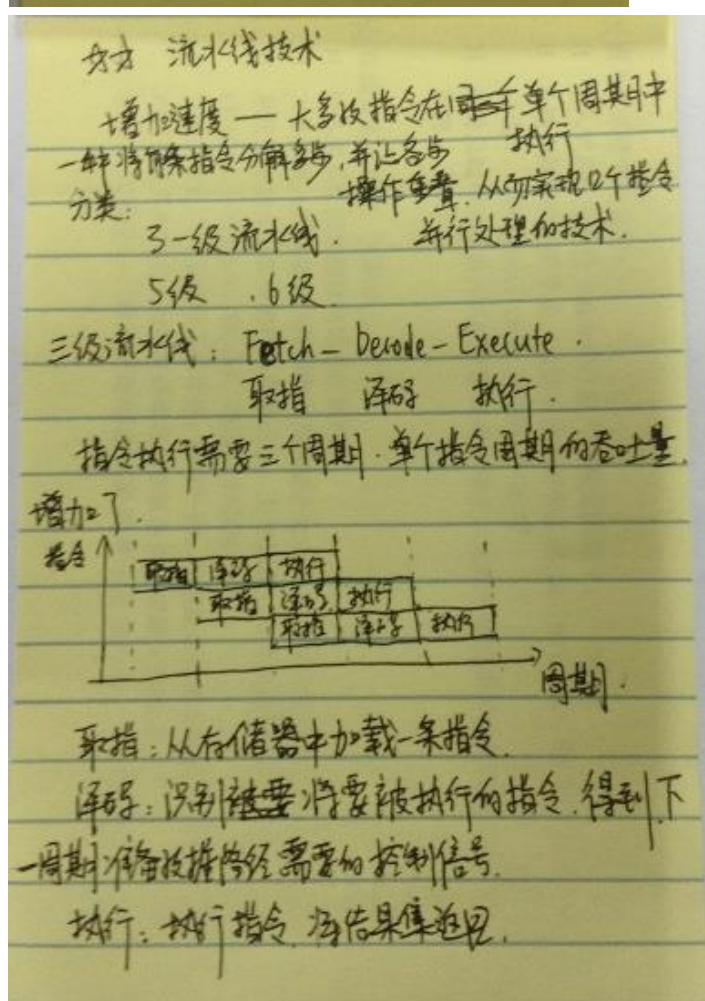 流水线技术
增加速度 — 大多数指令在单个周期中
执行
一种将每条指令分解多步,并让各步
操作重叠.从而实现几个指令
并行处理的技术.
分类:
3一级流水线.
5级 . 6级
三级流水线: Fetch - Decode - Execute.
取指 译码 执行.
指令执行需要三个周期.单个指令周期的吞吐量
增加了.
指令
取指 译码 执行
取指 译码 执行
取指 译码 执行
周期.
取指:从存储器中加载一条指令.
译码:识别将要被执行的指令.得到下
一周期准备数据路径需要的控制信号.
执行:执行指令.将结果集返回.